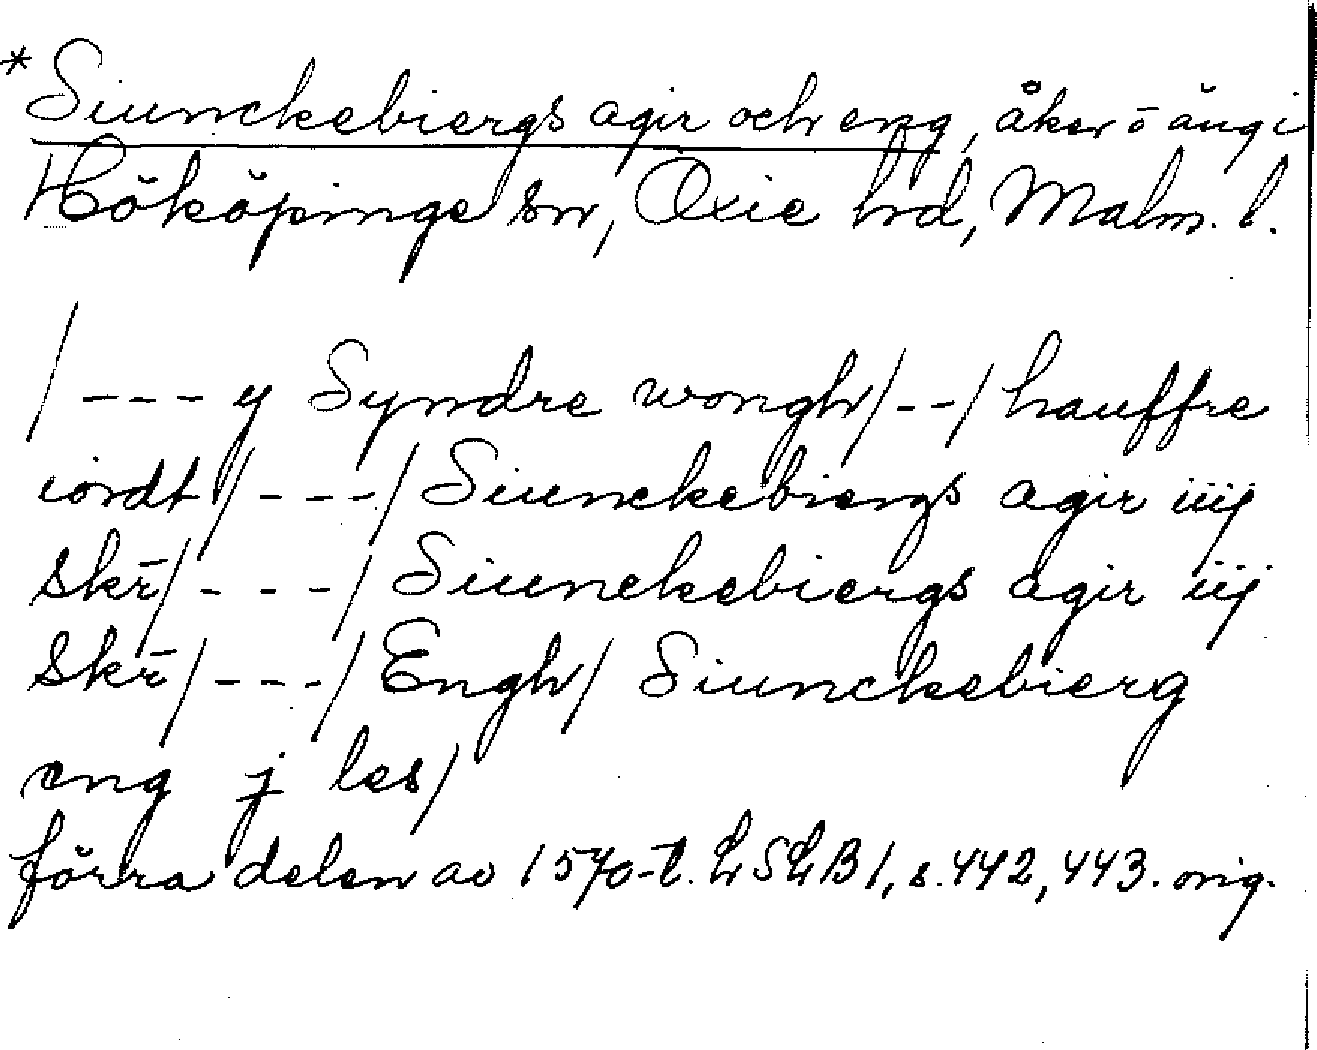 *Siunckebiergs agir och eng, åker o äng i
Hököpinge sn, Oxie hd, Malm. l.
/---y Syndre wongh/--/hauffre
iordt/---/Siunckebiergs agir iiij
skr̄/---/Siunckebiergs agir iij
Skr̄/---/Engh/Siunckebierg
eng j les/
förra delen av 1570-t. LSLB1, s.442, 443. orig.